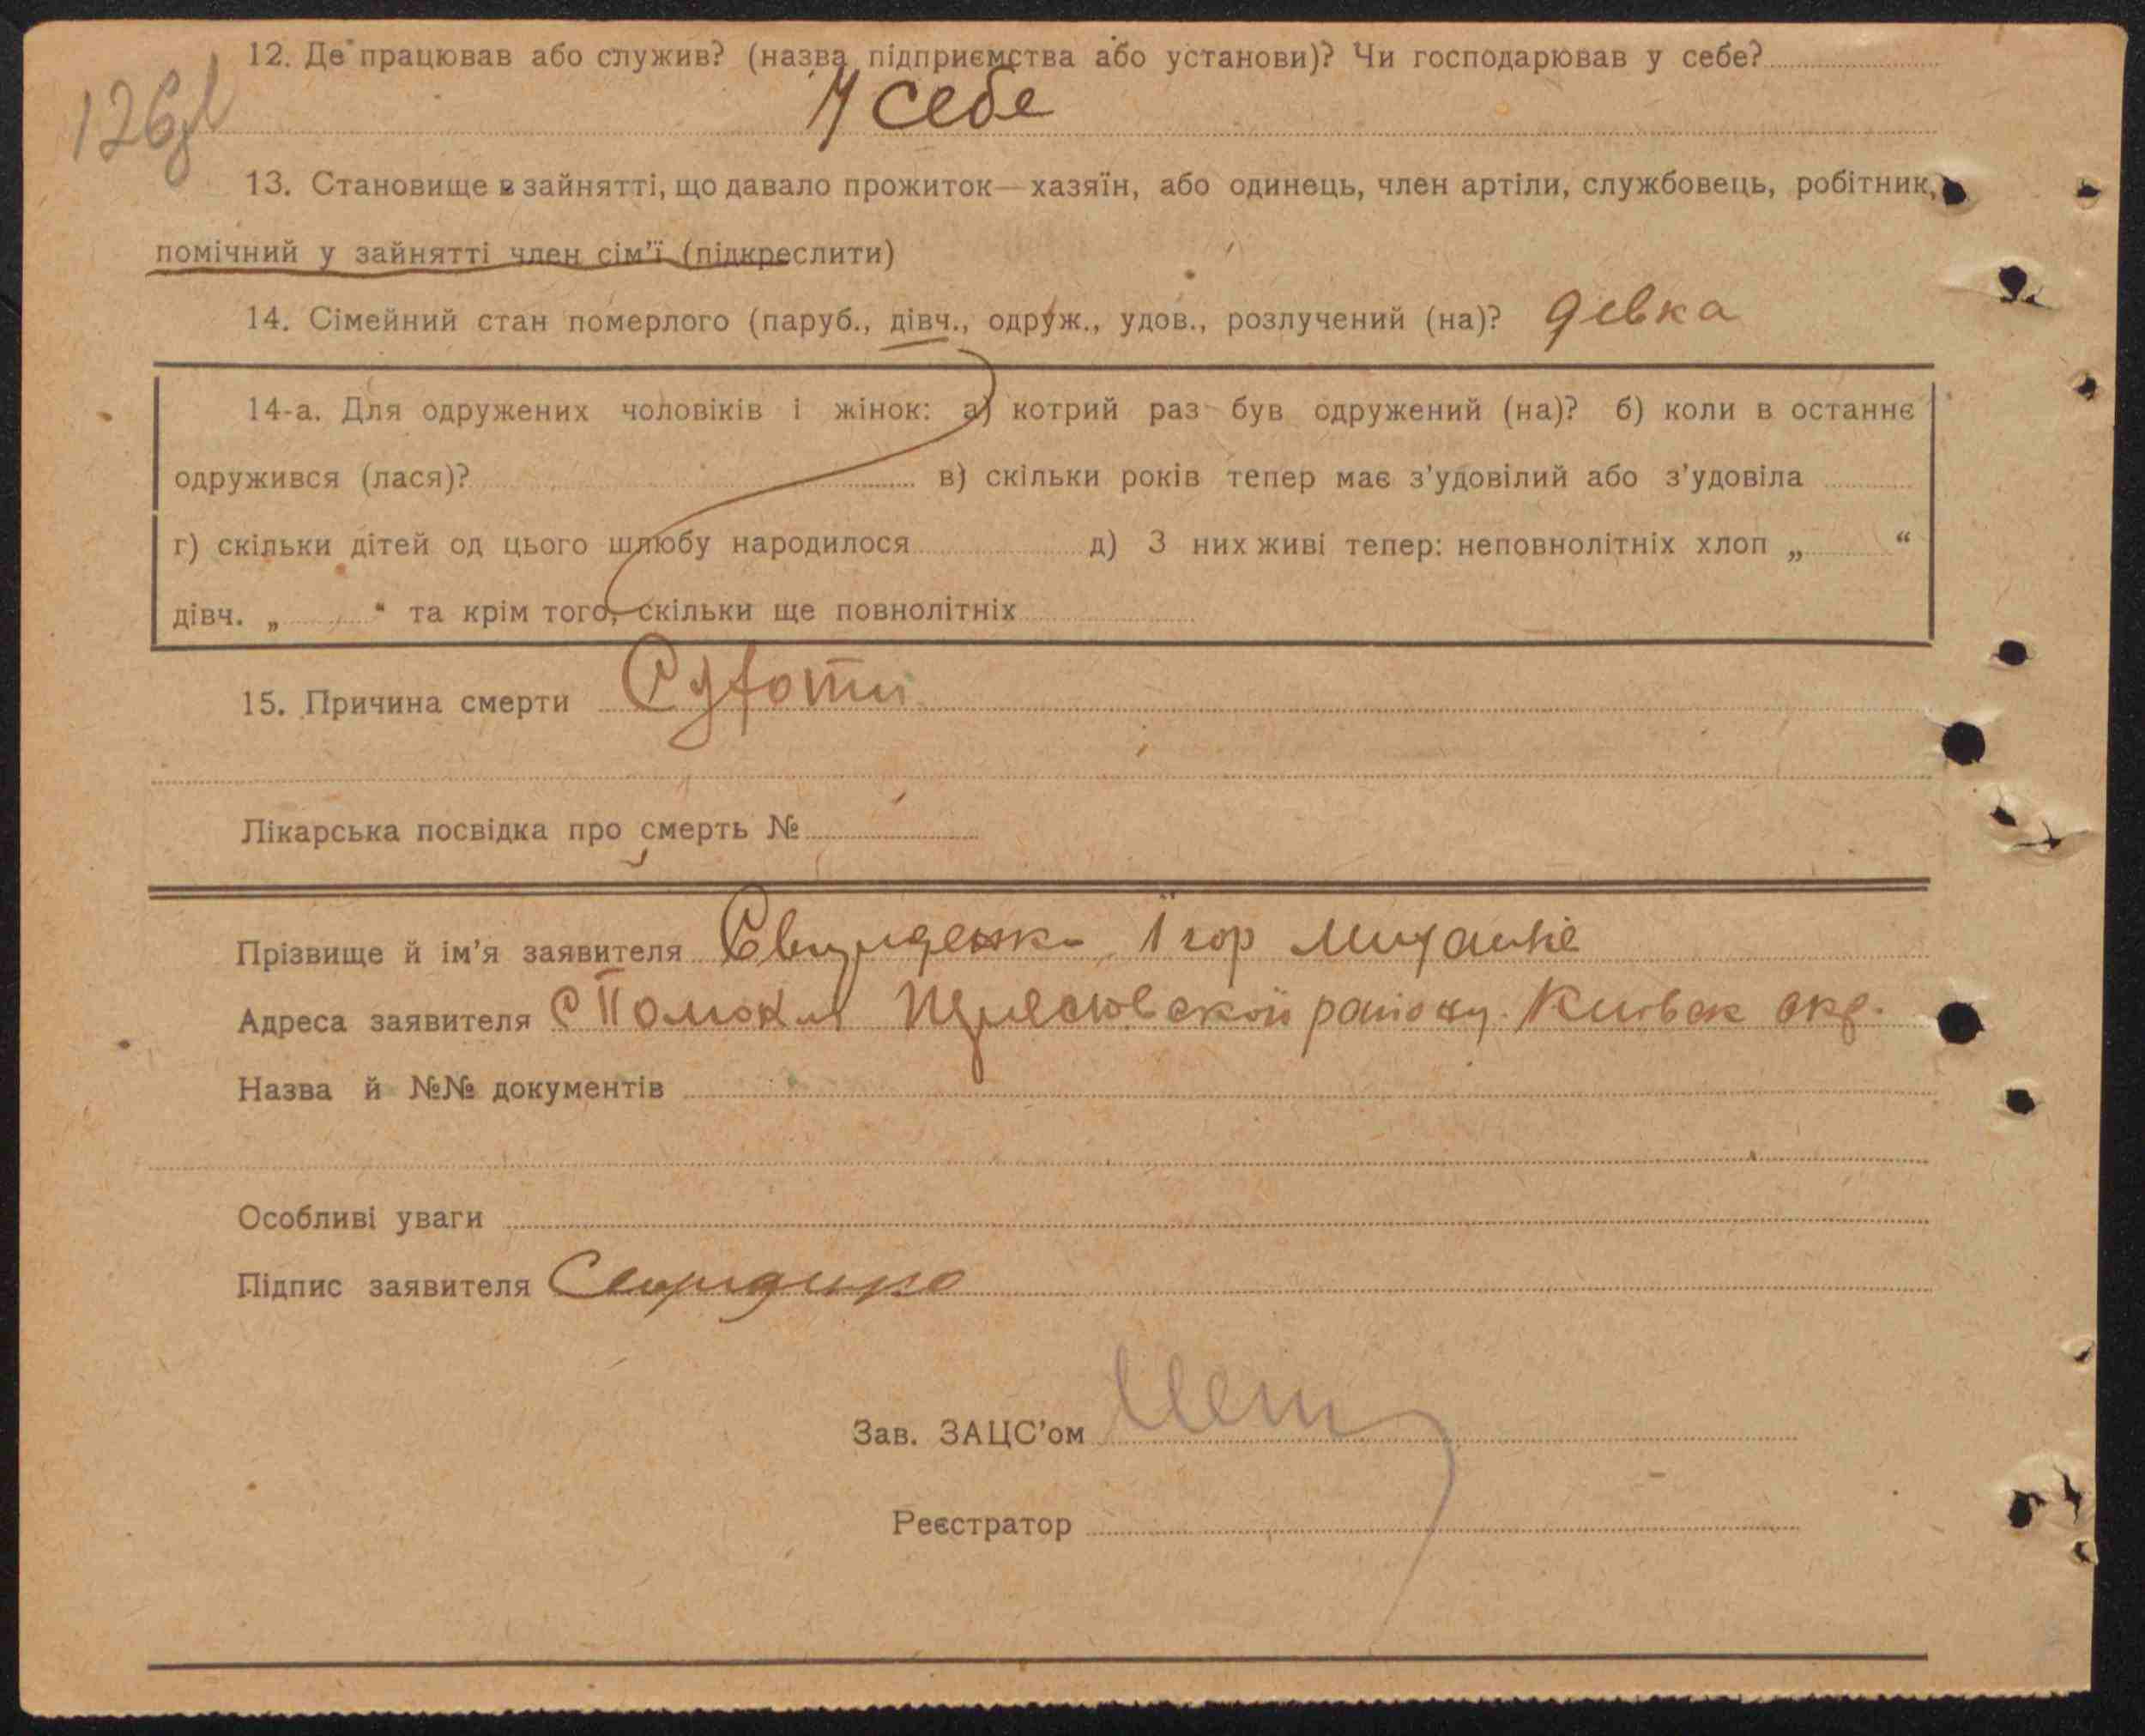 12. Де працював або служив? (назва підприємства або установи)? Чи господарював у себе?
У себе
13. Становище в зайнятті, що давало прожиток—хазяїн, або одинець, член артіли, службовець, робітник,
помічний у зайнятті член сім'ї (підкреслити)
14. Сімейний стан померлого (паруб., дівч., одруж., удов., розлучений (на)? девка
14-а. Для одружених чоловіків і жінок: а) котрий раз був одружений (на)? б) коли в останнє
одружився (лася)? в) скільки років тепер має з'удовілий або з'удовіла
г) скільки дітей од цього шлюбу народилося д) З них живі тепер: неповнолітніх хлоп „ “
дівч. „ “ та крім того, скільки ще повнолітніх
15. Причина смерти Сухоти
Лікарська посвідка про смерть №
Прізвище й ім'я заявителя Ігор
Адреса заявителя С Помокля району Киівск окр.
Назва й №№ документів
Особливі уваги
Підпис заявителя
Зав. ЗАЦС'ом
Реєстратор